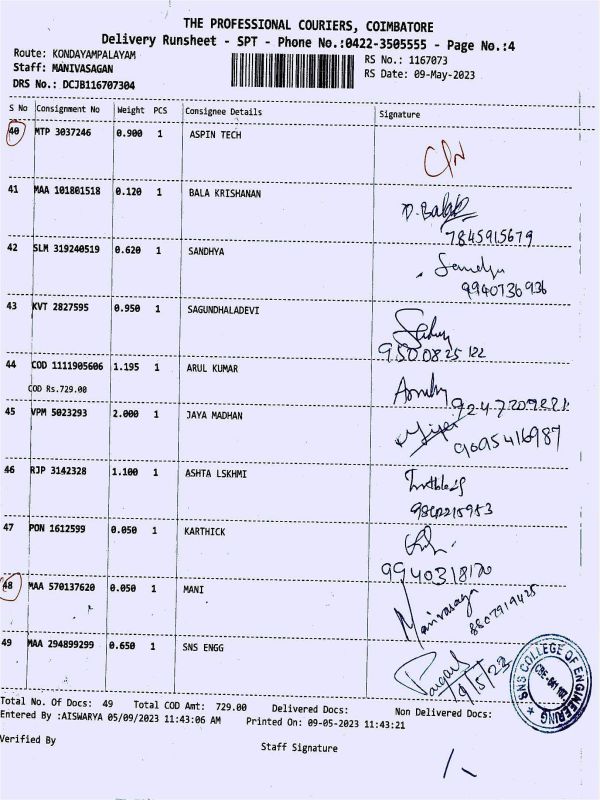 THE PROFESSIONAL COURIERS, COIMBATORE
Delivery Runsheet - SPT - Phone No.:0422-3505555 - Page No.:4
Route: KONDAYAMPALAYAM
Staff: MANIVASAGAN
DRS No.: DCJB116707304
RS No.: 1167073
RS Date: 09-May-2023
S No Consignment No Weight PCS Consignee Details Signature
40 MTP 3037246 0.900 1 ASPIN TECH
41 MAA 101801518 0.120 1 BALA KRISHANAN
7845915679
42 SLM 319240519 0.620 1 SANDHYA
9940736936
43 KVT 2827595 0.950 1 SAGUNDHALADEVI
9500825122
44 COD 1111905606 1.195 1 ARUL KUMAR
COD Rs.729.00
45 VPM 5023293 2.000 1 JAYA MADHAN
9095416987
46 RJP 3142328 1.100 1 ASHTA LSKHMI
47 PON 1612599 0.050 1 KARTHICK
9940318170
48 MAA 570137620 0.050 1 MANI
Manivasaga
8807919425
49 MAA 294899299 0.650 1 SNS ENGG
SNS COLLEGE OF ENGINEERING
Total No. Of Docs: 49 Total COD Amt: 729.00 Delivered Docs: Non Delivered Docs:
Entered By :AISWARYA 05/09/2023 11:43:06 AM Printed On: 09-05-2023 11:43:21
Verified By
Staff Signature